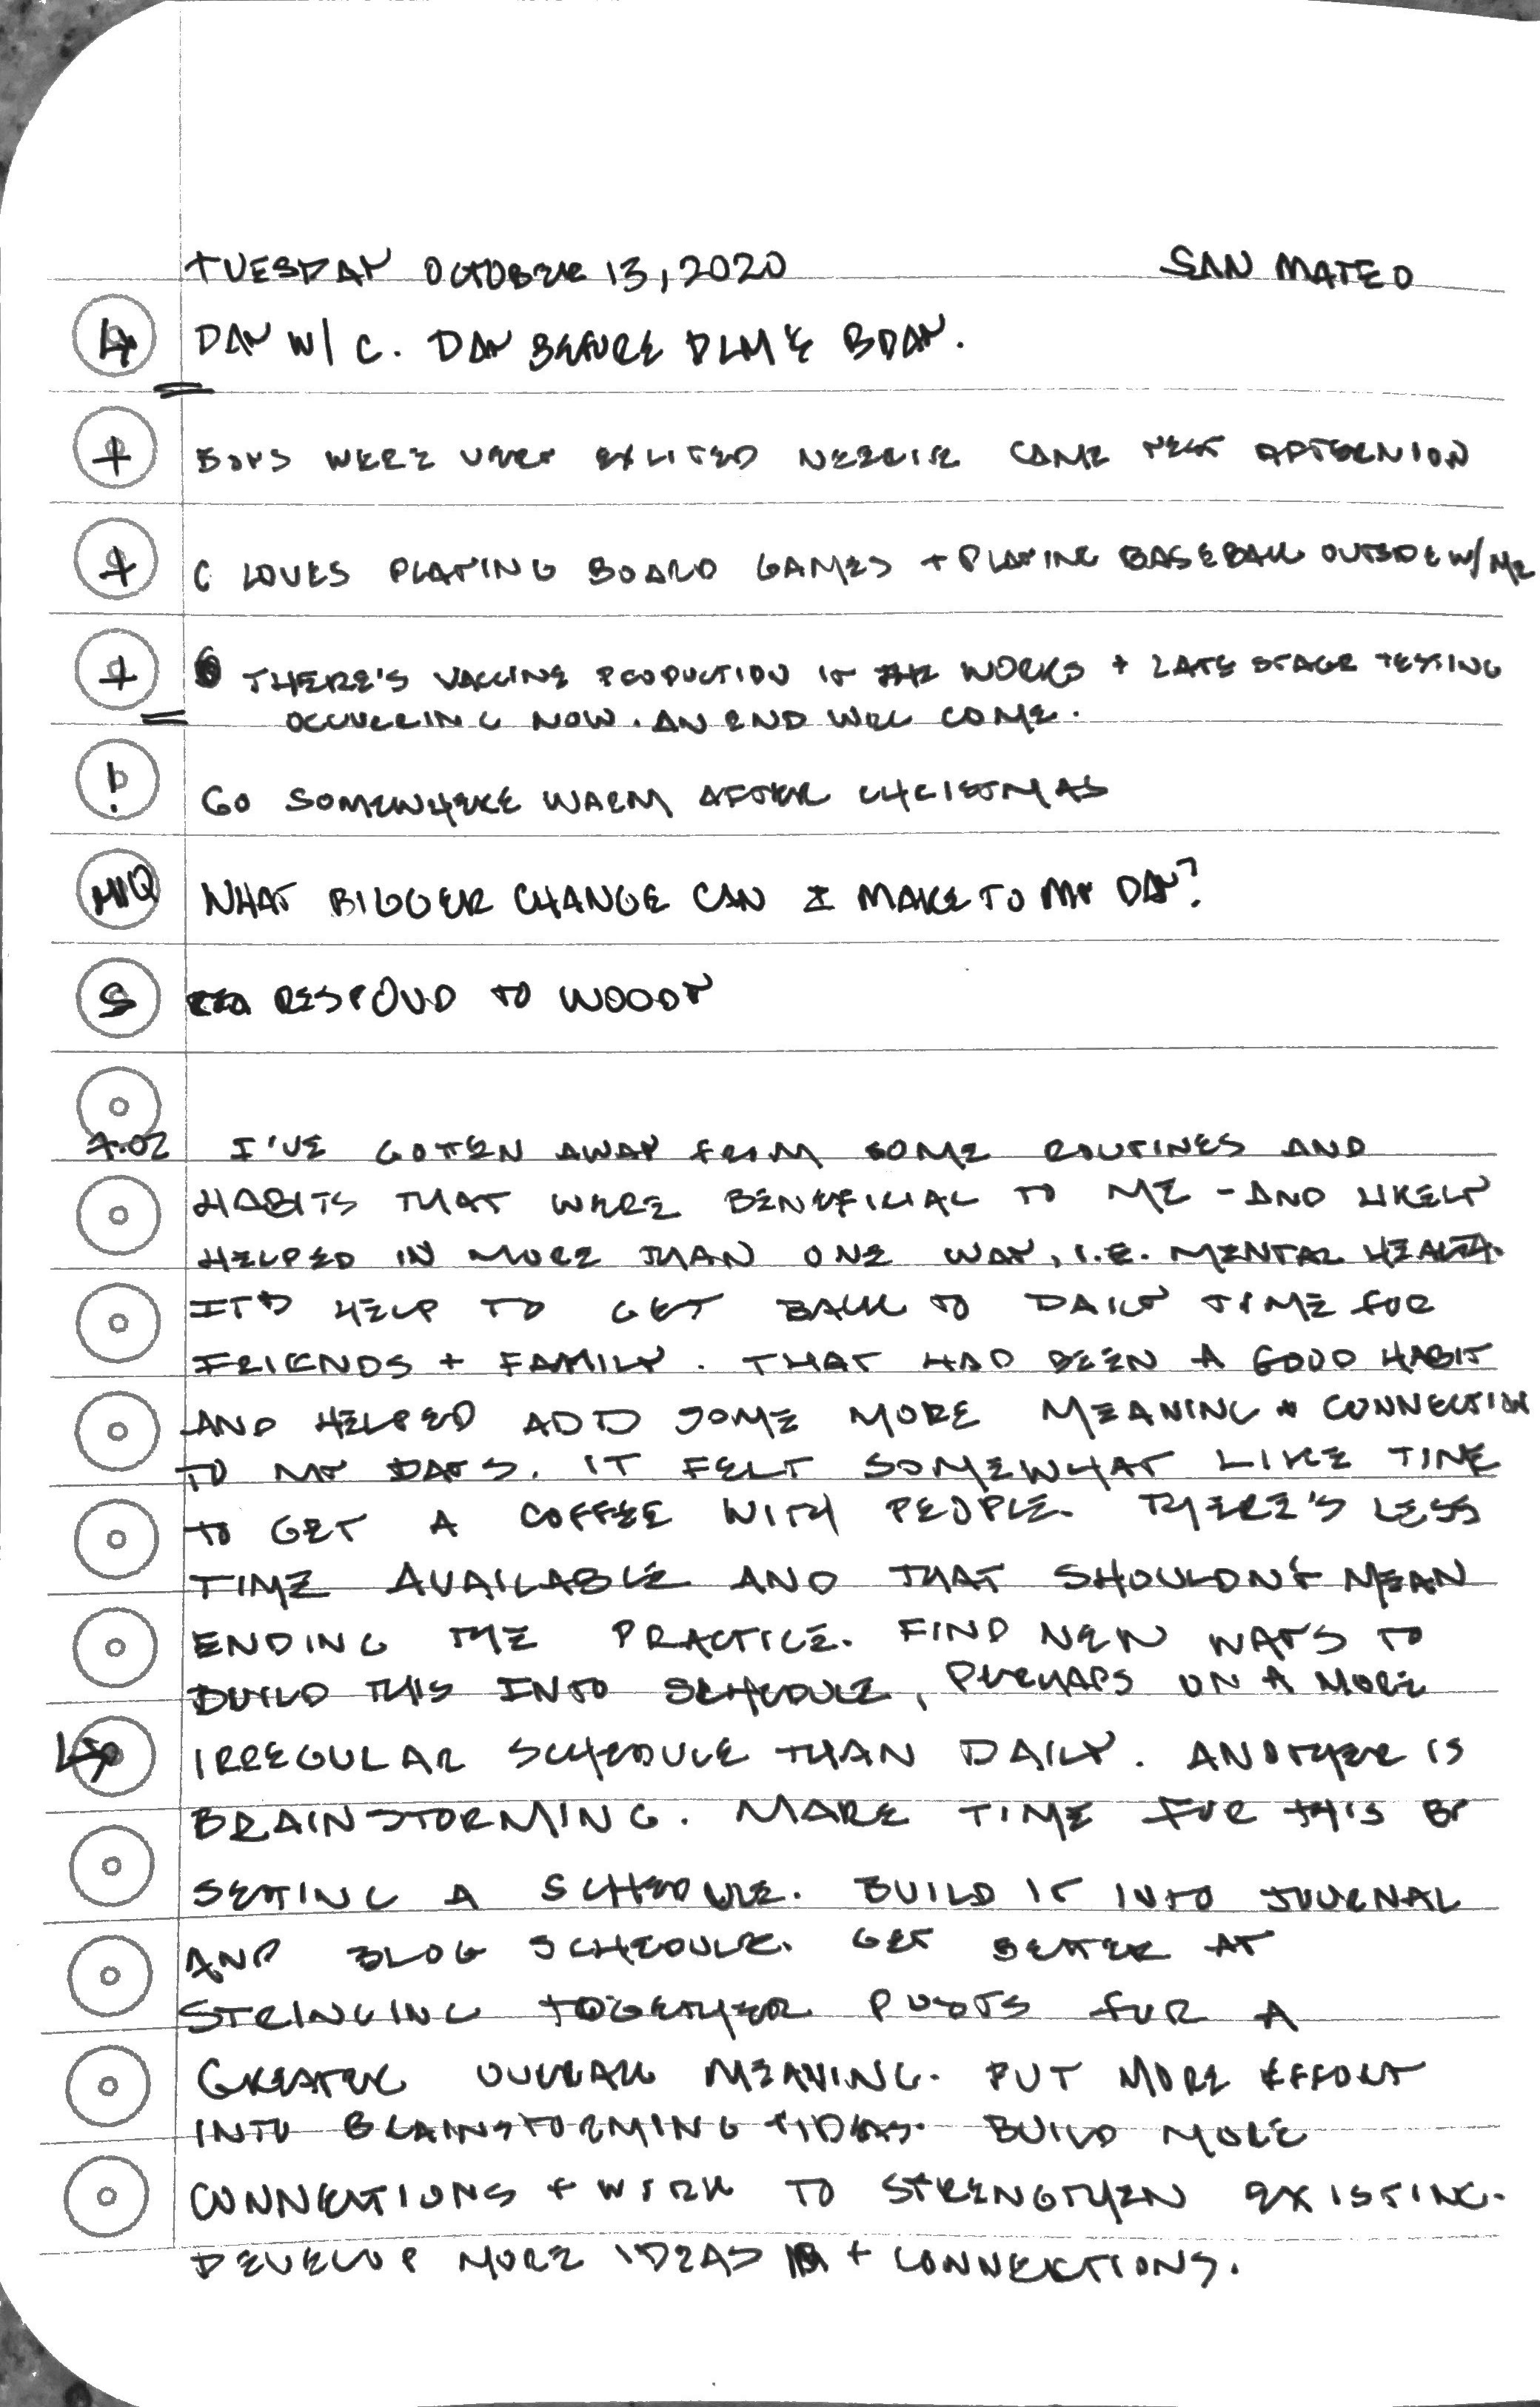 TUESDAY OCTOBER 13, 2020 SAN MATEO
4 DAY W/ C. DAY BEFORE BDAY.
+ BOYS WERE VERY EXCITED CAME AFTERNOON
+ C LOVES PLAYING BOARD GAMES + PLAYING BASEBALL OUTSIDE W/ ME
+ THERE'S VACCINE PRODUCTION IN THE WORKS + LATE STAGE TESTING
OCCURRING NOW. AN END WILL COME.
! GO SOMEWHERE WARM AFTER CHRISTMAS
WHAT BIGGER CHANGE CAN I MAKE TO MY DAY?
S RESPOND TO WOODY
7.02 I'VE GOTTEN AWAY FROM SOME ROUTINES AND
HABITS THAT WERE BENEFICIAL TO ME - AND LIKELY
HELPED IN MORE THAN ONE WAY, I.E. MENTAL HEALTH.
IT'D HELP TO GET BACK TO DAILY TIME FOR
FRIENDS + FAMILY. THAT HAD BEEN A GOOD HABIT
AND HELPED ADD SOME MORE MEANING + CONNECTION
TO MY DAYS. IT FELT SOMEWHAT LIKE TIME
TO GET A COFFEE WITH PEOPLE. THERE'S LESS
TIME AVAILABLE AND THAT SHOULDN'T MEAN
ENDING THE PRACTICE. FIND NEW WAYS TO
BUILD THIS INTO SCHEDULE, PERHAPS ON A MORE
IRREGULAR SCHEDULE THAN DAILY. ANOTHER IS
BRAINSTORMING. MAKE TIME FOR THIS BY
SETTING A SCHEDULE. BUILD IT INTO JOURNAL
AND BLOG SCHEDULE. GET BETTER AT
STRINGING TOGETHER POSTS FOR A
GREATER OVERALL MEANING. PUT MORE EFFORT
INTO BRAINSTORMING + IDEAS. BUILD MORE
CONNECTIONS + WORK TO STRENGTHEN EXISTING.
DEVELOP MORE IDEAS + CONNECTIONS.